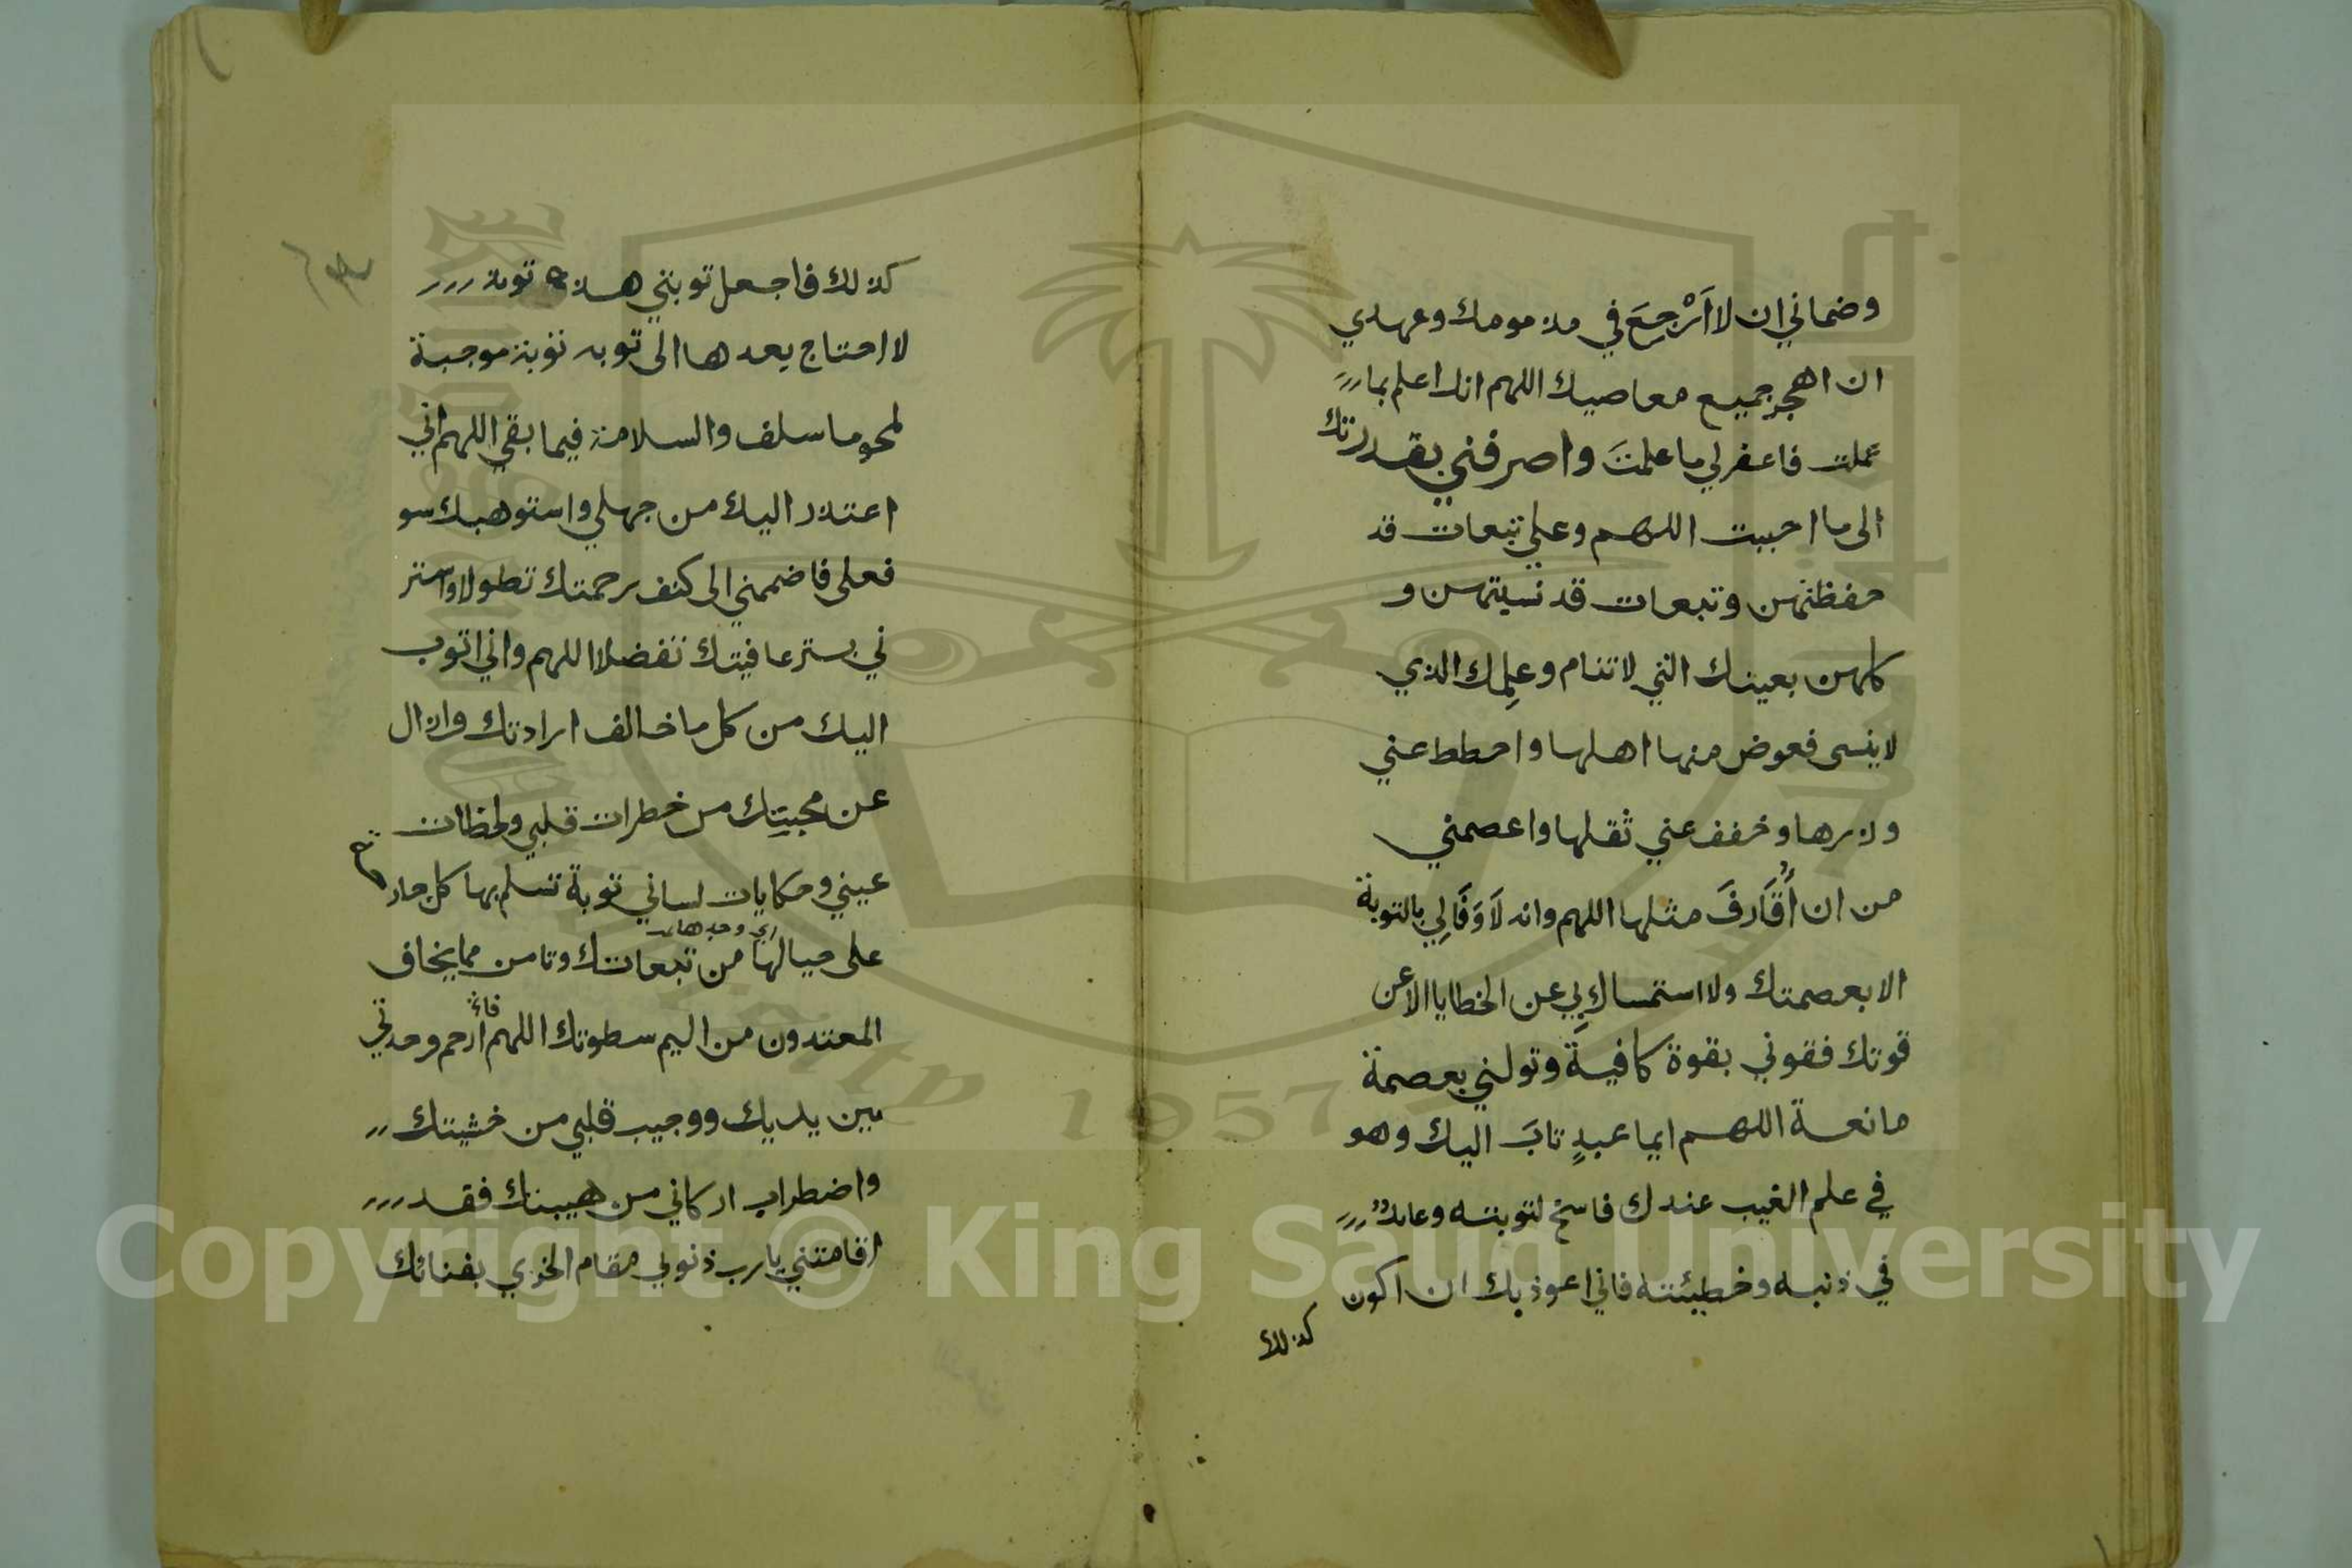 وضماني ان لا اَرْجِعَ في مذمومك وعهدي
ان اهجر جميع معاصيك اللهم انك اعلم بما
عملت فاغفر لي ما علمتَ واصرفني بقدرتك
الى ما احببت اللهم وعلي تبعات قد
حفظتهن وتبعات قد نسيتهن و
كلهن بعينك التي لا تنام وعلمك الذي
لا ينسى فعوض منها اهلها واحطط عني
وزرها وخفف عني ثقلها واعصمني
من ان أُقَارفَ مثلها اللهم وانه لَا وَفَا لِي بالتوبة
الا بعصمتك ولا استمساك بِي عن الخطايا الا عن
قوتك فقوني بقوة كافية وتولني بعصمة
مانعة اللهم ايما عبدٍ تابَ اليك وهو
في علم الغيب عندك فاسخ لتوبته وعائد
في ذنبه وخطيئته فاني اعوذ بك ان اكون
كذلك
كذلك فاجعل توبتي هذه توبة
لا احتاج بعدها الى توبه توبة موجبة
لمحو ما سلف والسلامة فيما بقي اللهم اني
اعتذر اليك من جهلي واستوهبك سو
فعلي فاضممني الى كنف رحمتك تطولا واستر
ني بستر عافيتك تفضلا اللهم واني اتوب
اليك من كل ما خالف ارادتك وازال
عن محبتك من خطرات قلبي ولحظات
عيني وحكايات لساني توبة تسلم بها كل جار
حة
على حيالها من تبعاتك وتامن مما يخاف
اي وحدها
المعتدون من اليم سطوتك اللهم ارحم وحدتي
بين يديك ووجيب قلبي من خشيتك
واضطراب اركاني من هيبتك فقد
اقامتني يا رب ذنوبي مقام الخزي بفنائك
Copyright © King Saud University
1957